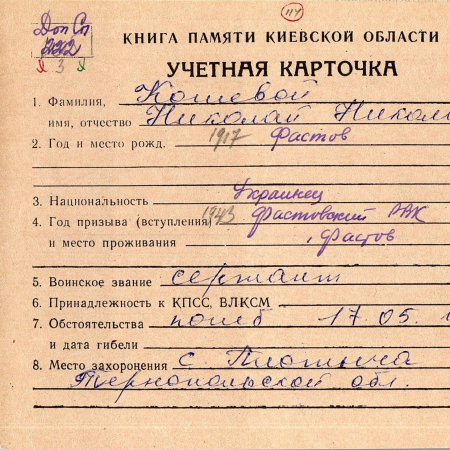 114
Доп Сп
222
3
КНИГА ПАМЯТИ КИЕВСКОЙ ОБЛАСТИ
УЧЕТНАЯ КАРТОЧКА
1. Фамилия, Кошевой
имя, отчество Николай Никол
2. Год и место рожд. 1917 Фастов
3. Национальность Украинец
4. Год призыва (вступления) 1943 Фастовский РВК
и место проживания , Фастов
5. Воинское звание сержант
6. Принадлежность к КПСС, ВЛКСМ
7. Обстоятельства погиб 17.05.
и дата гибели
8. Место захоронения с. Плотыча
Тернопольской обл.